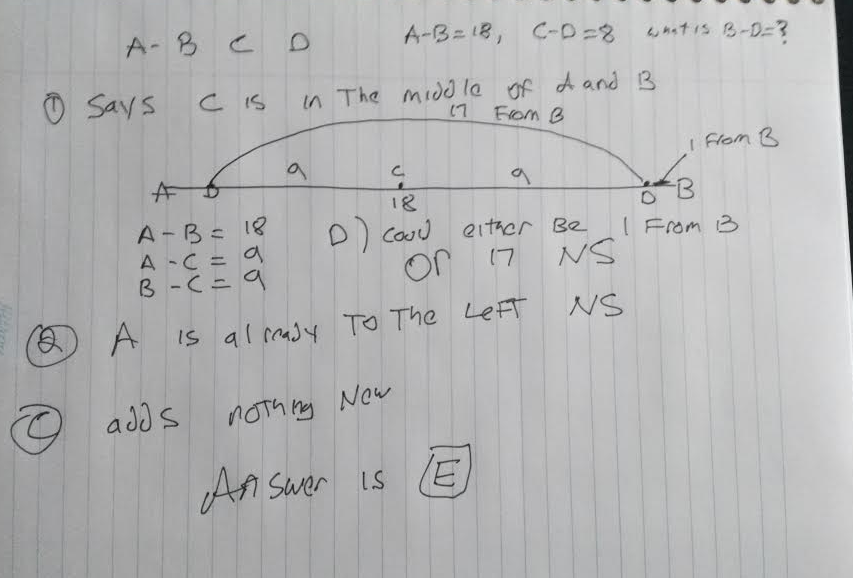 A-B C D A-B=18, C-D=8 what is B-D=?
① Says C is in The middle of A and B
17 From B
1 From B
9 C 9
A D D B
18
A-B = 18 D) could either Be 1 From B
A-C = 9 or 17 NS
B-C = 9
② A is already To The Left NS
Ⓒ adds nothing New
Answer is E